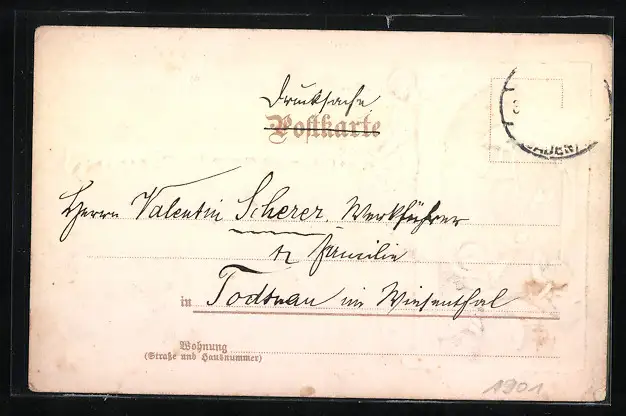 Drucksache
Postkarte
(BADEN)
Herrn Valentin Scherer, Werkführer
& Familie
in Todtnau im Wiesenthal
Wohnung
(Straße und Hausnummer)
1901